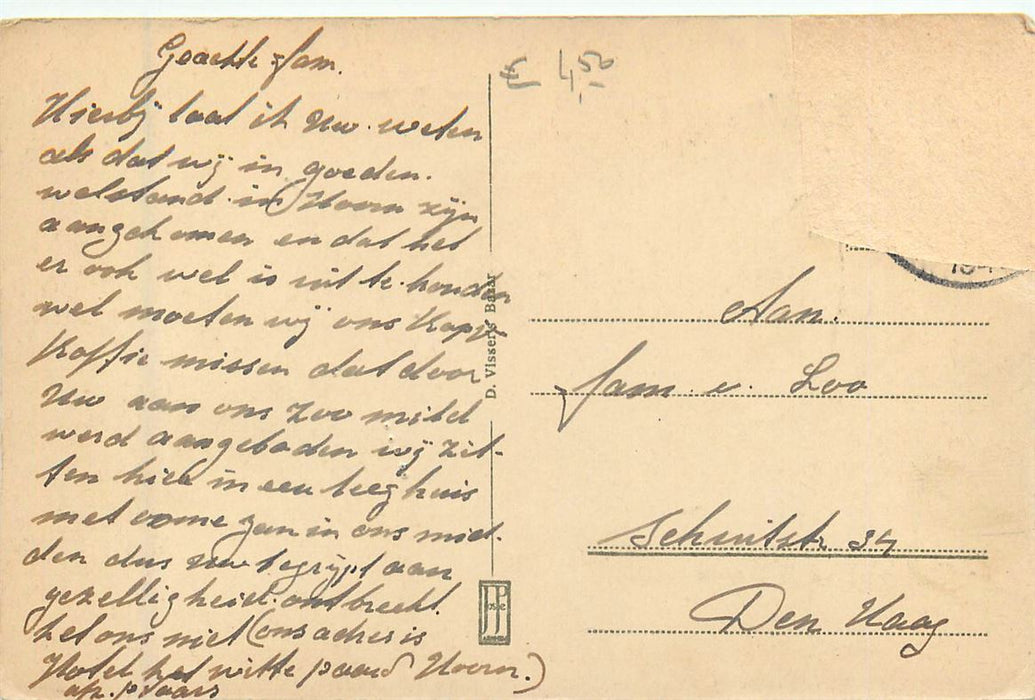 Geachte fam.
Hierbij laat ik Uw weten
als dat wij in goeden.
welstand in Hoorn zijn
aangekomen en dat het
er ook wel is uit te houden
wel moeten wij ons Kopje
Koffie missen dat door
Uw aan ons zoo mild
werd aangeboden wij zit-
ten hier in een leeg huis
met oome Jan in ons mid-
den dus Uw begrijpt aan
gezelligheid ontbreekt
het ons niet (ons adres is
Hotel het witte paard Hoorn.)
£ 4,50
D. Visser's Bazar
194
Aan.
fam. v. Loo
Schuitstr 34
Den Haag